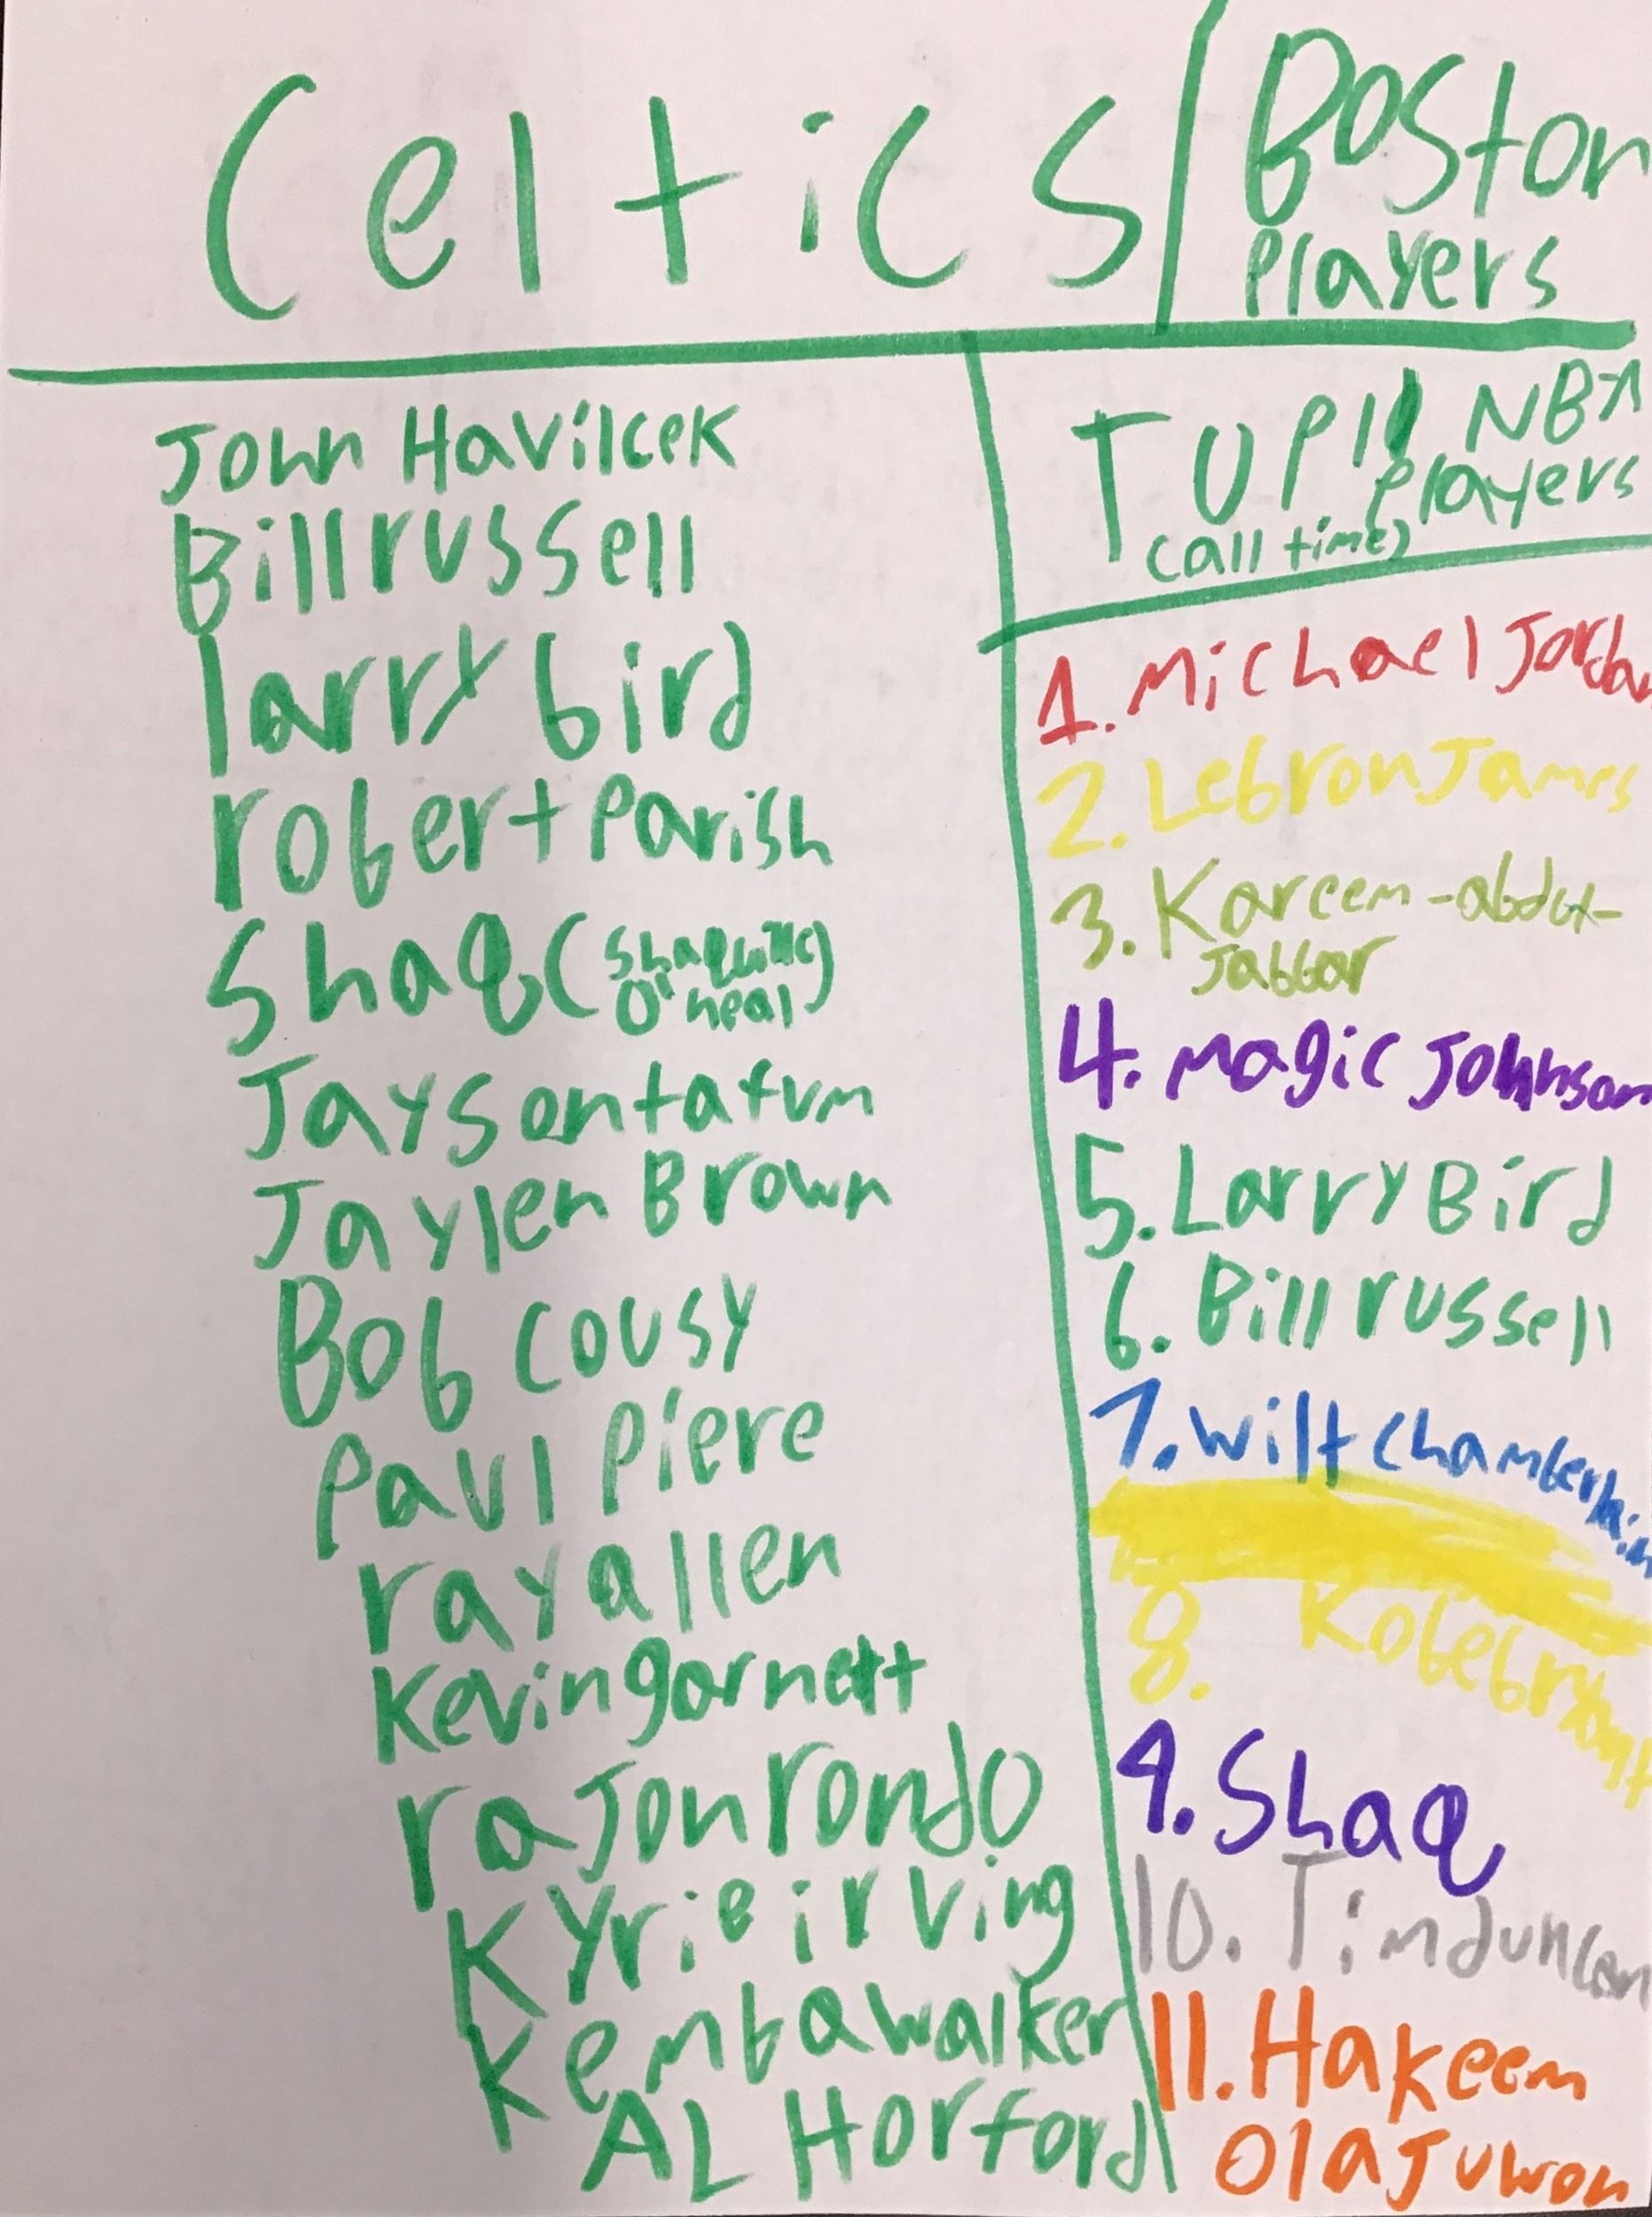 Celtics/
Boston
Players
John Havilcek
Bill russell
larry bird
robert Parish
Shaq (Shaquille
O'neal)
Jayson tatum
Jaylen Brown
Bob cousy
Paul Piere
ray allen
Kevin garnett
raJon rondo
Kyrie irving
Kemba walker
AL Horford
TOP 11 NBA
Players
(all time)
1. Michael Jordan
2. Lebron James
3. Kareem-abdul-
Jabbar
4. magic Johnson
5. Larry Bird
6. Bill russell
7. wilt chamberlain
8. Kobe bryant
9. Shaq
10. Tim duncan
11. Hakeem
OlaJuwon